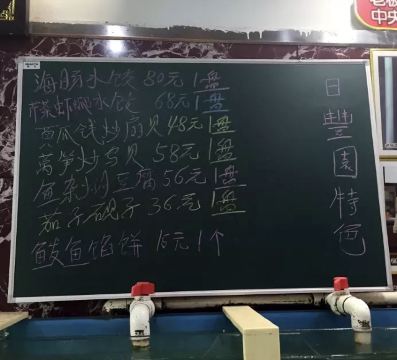 海肠水饺 80元1盘
菜虾仁水饺 68元1盘
黄瓜钱炒扇贝 48元1盘
莴笋炒鸟贝 58元1盘
鱼杂炖豆腐 56元1盘
茄子砚子 36元1盘
鲅鱼馅饼 15元1个
日豐园特色
老板
中央